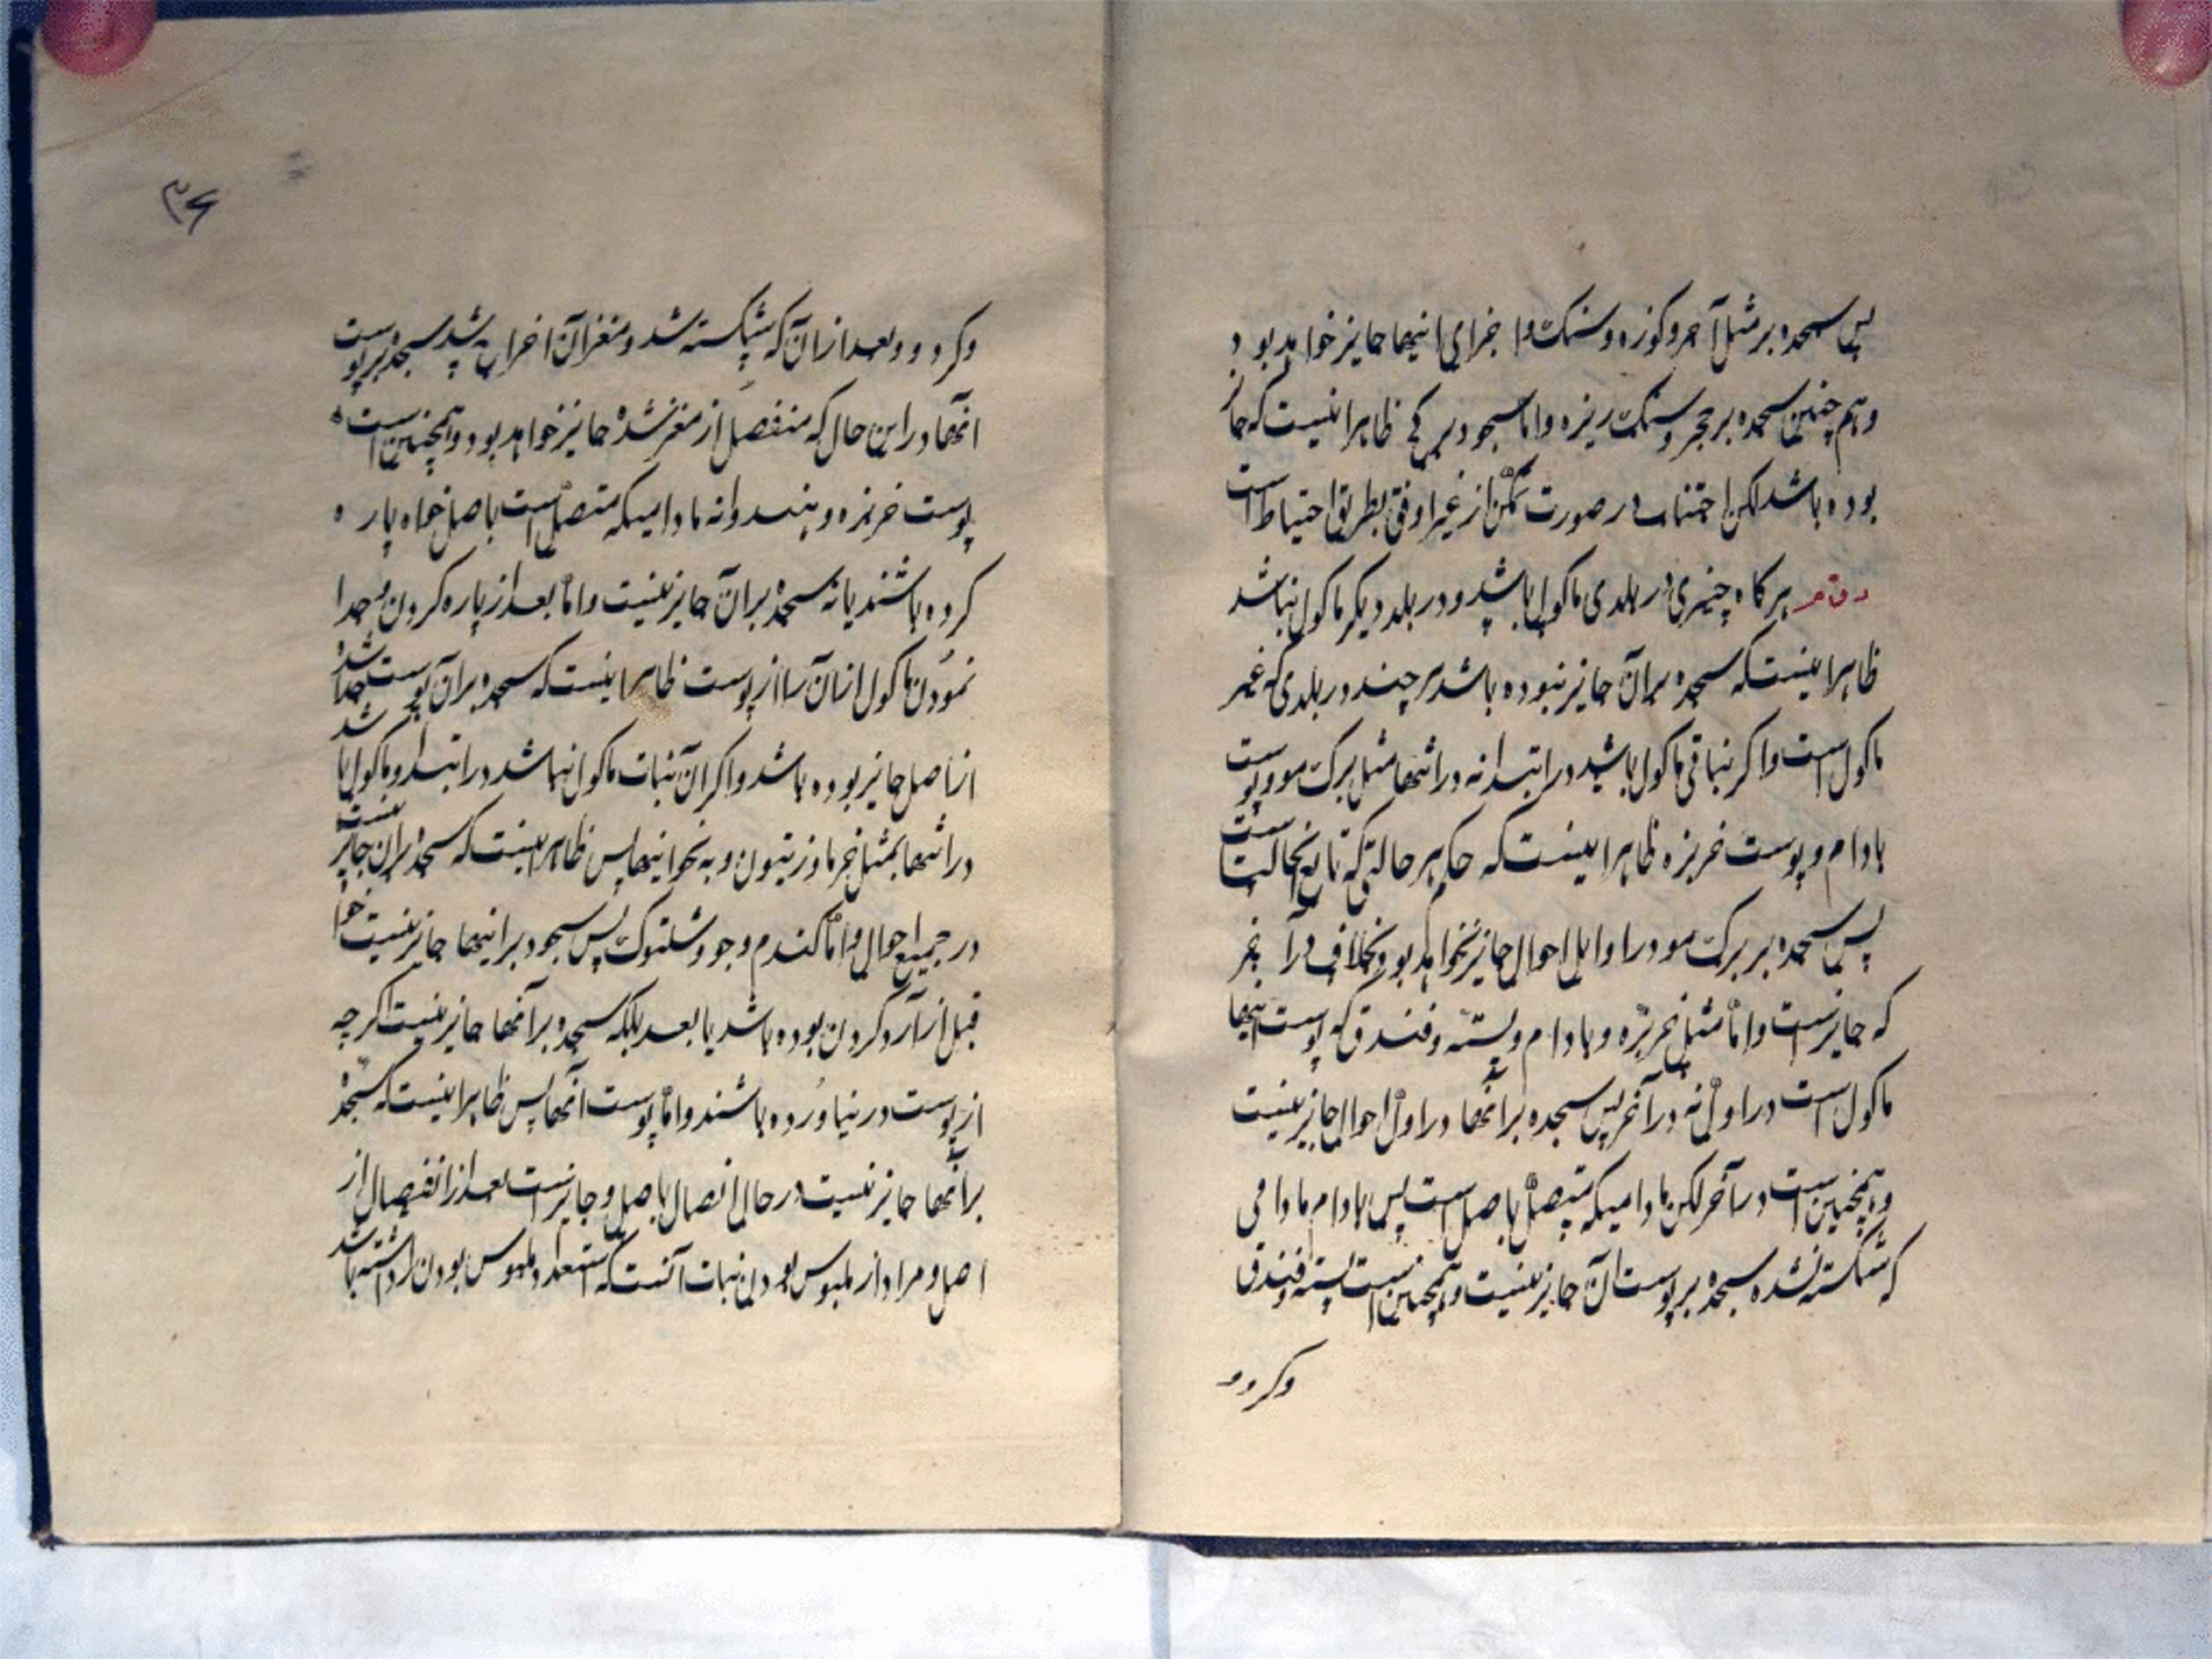 پس سجده بر مثل آجر و کوزه و سنک و اجزای اینها جایز خواهد بود
و هم چنین سجده بر حجر و سنک ریزه و اما سجود بر کچ ظاهر اینست که جایز
بوده باشد لکن اجتناب در صورت تمکن از غیر اوفق بطریق احتیاط است
هر کاه چیزی در بلدی ماکول باشد و در بلد دیکر ماکول نباشد
ظاهر اینست که سجده بر آن جایز نبوده باشد هر چند در بلدی که غیر
ماکول است و اکر نباتی ماکول باشد در ابتدا نه در انتها مثل برک مو و پوست
بادام و پوست خربزه ظاهر اینست که حکم هر حالتی که تابع انحالتست
پس سجده بر برک مو در اوایل احوال جایز نخواهد بود بخلاف در آخر
که جایز است و اما مثل خربزه و بادام و پسته و فندق که پوست اینها
ماکول است در اول نه در آخر پس سجده بر آنها در اول احوال جایز نیست
و همچنین است در آخر لکن مادامیکه متصل باصل است پس بادام مادامی
که شکسته نشده سجده بر پوست آن جایز نیست و همچنین است پسته و فندق
وکردو
۳۶
وکردو و بعد از آن که شکسته شد و مغز آن اخراج شد سجده بر پوست
آنها در این حال که منفصل از مغز شده جایز خواهد بود و همچنین است
پوست خربزه و هندوانه مادامیکه متصل است باصل خواه پاره
کرده باشند یا نه سجده بر آن جایز نیست و اما بعد از پاره کردن و جدا
نمودن ماکول از آن را از پوست ظاهر اینست که سجده بر آن پوست جدا شده
از اصل جایز بوده باشد و اکر آن نبات ماکول نباشد در ابتدا و ماکول باشد
در انتها بمثل خرما و زیتون و به نحو اینها پس ظاهر اینست که سجده بر آن جایز نیست
در جمیع احوال و اما کندم و جو و شلتوک پس سجود بر اینها جایز نیست خواه
قبل از آرد کردن بوده باشد یا بعد بلکه سجده بر آنها جایز نیست اکر چه
از پوست در نیاورده باشند و اما پوست آنها پس ظاهر اینست که سجده
بر آنها جایز نیست در حال اتصال باصل و جایز است بعد از انفصال از
اصل و مراد از ملبوس بودن نبات آنست که استعداد ملبوس بودن را داشته باشد